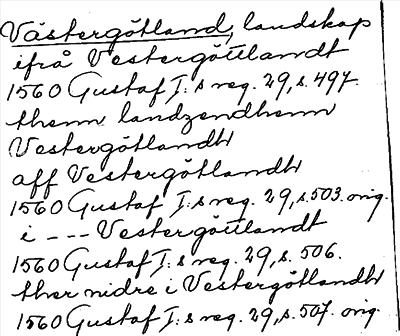 Västergötland, landskap
ifrå Vestergöttlandt
1560 Gustaf I:s reg. 29, s. 497.
themn landzendhemn
Vestergötlandh
aff Vestergötlandh
1560 Gustaf I:s reg. 29, s. 503. orig.
i --- Vestergöttlandt
1560 Gustaf I:s reg. 29, s. 506.
ther nidre i Vestergötlandh
1560 Gustaf I:s reg. 29, s. 507. orig.